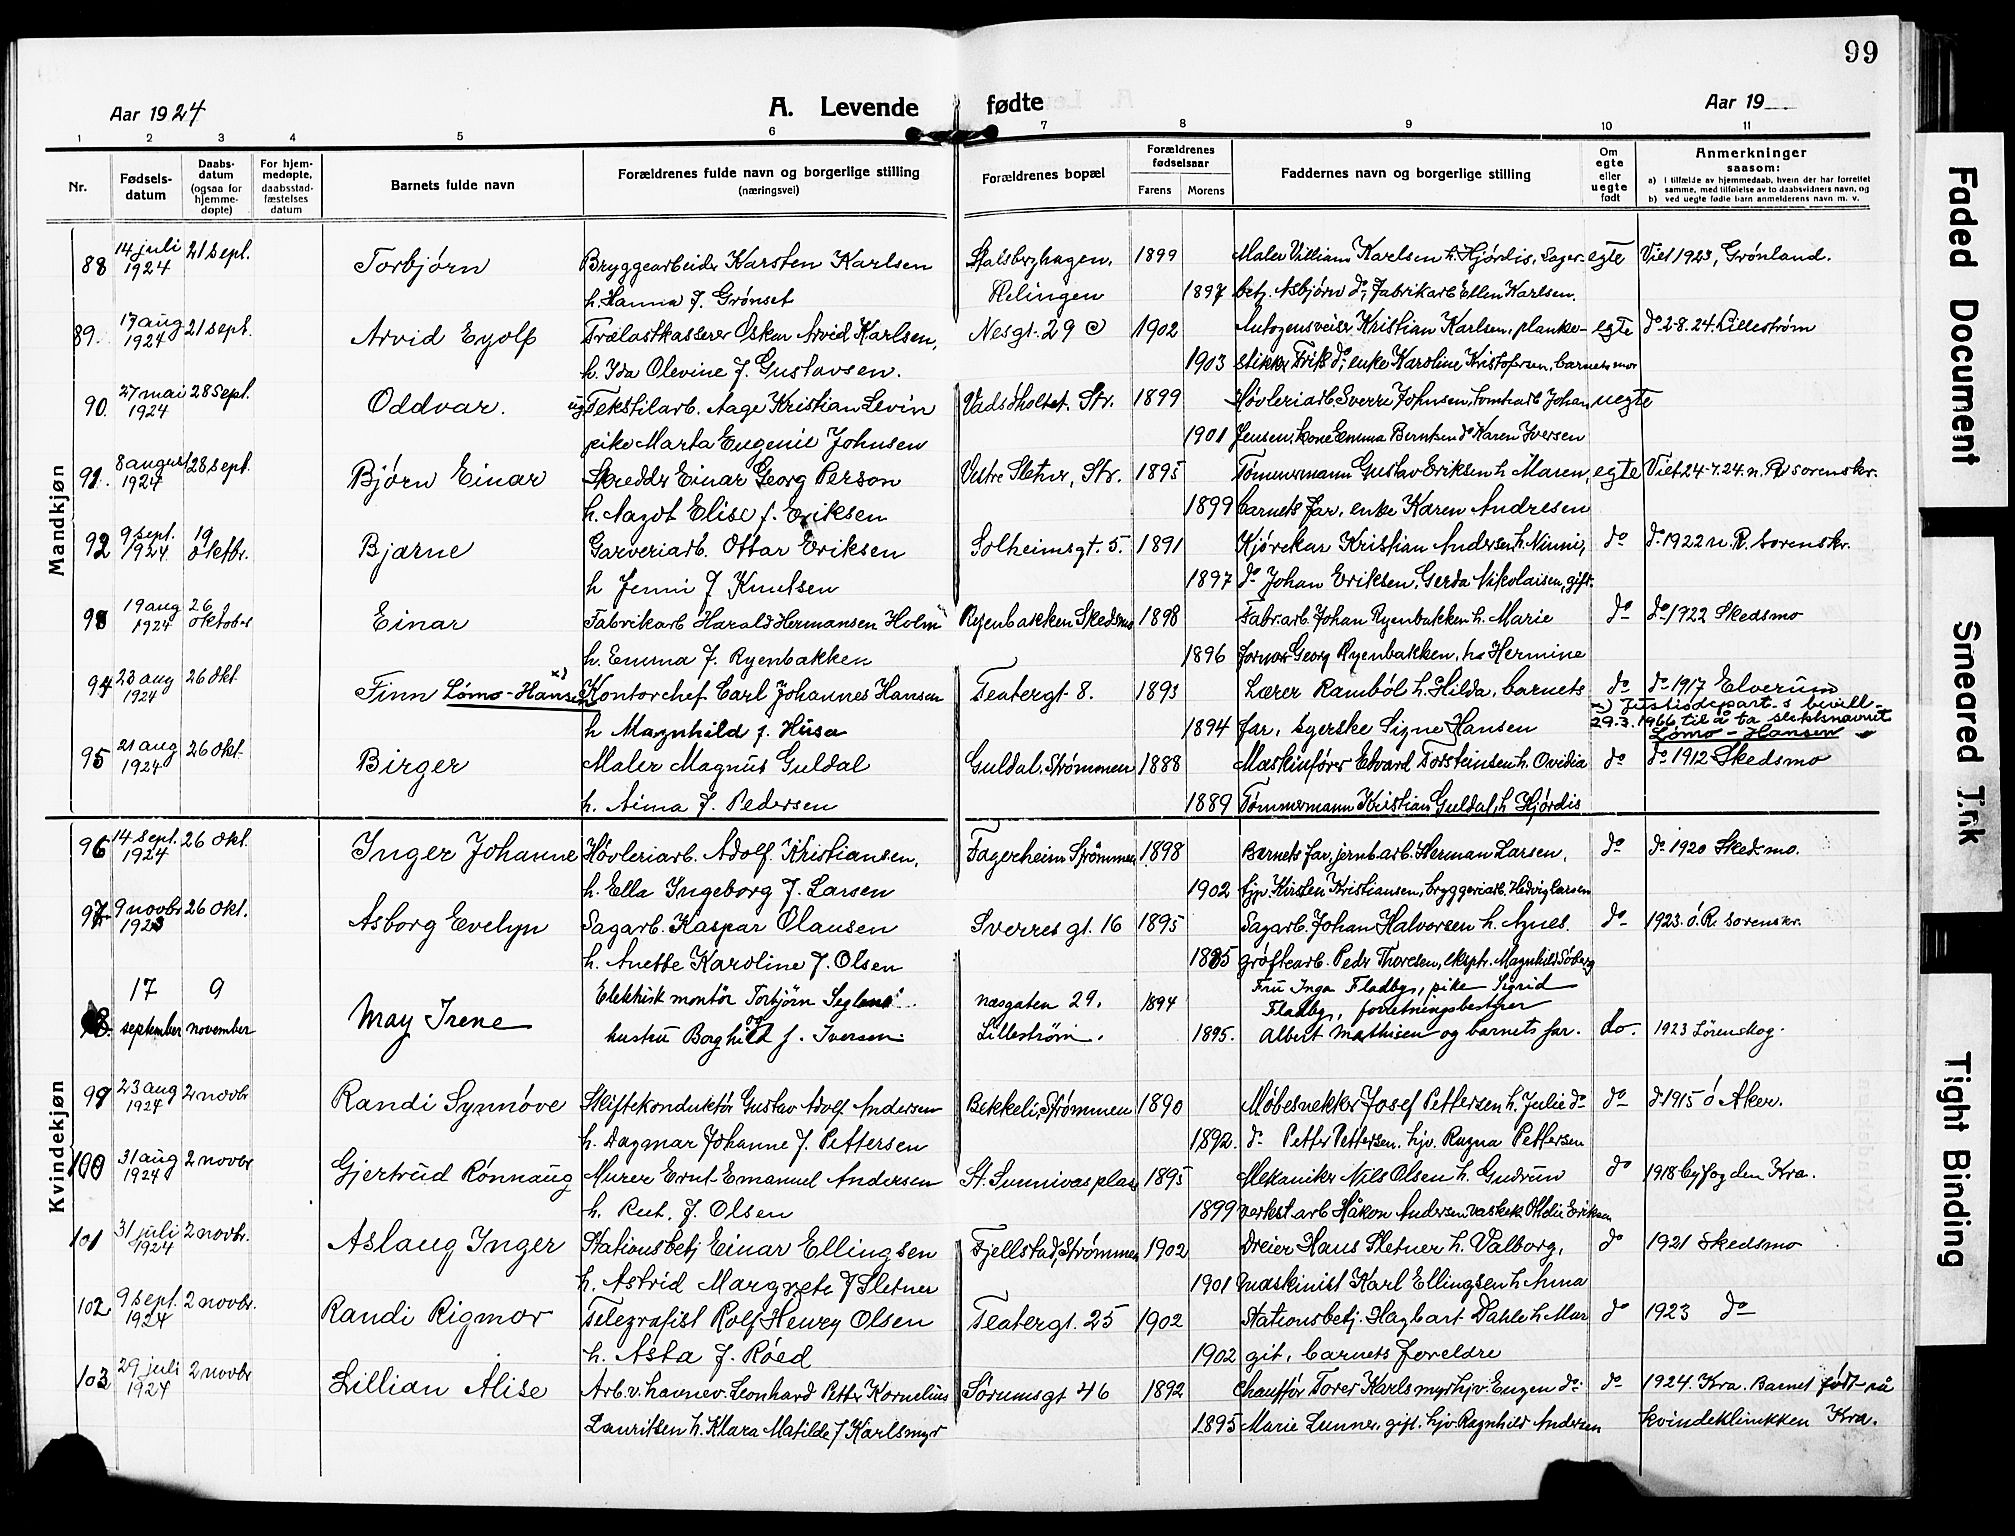 99
Aar 1924 A. Levende fødte Aar 19
1 2 3 4 5 6 7 8 9 10 11
Nr. Fødselsdatum Daabsdatum (ogsaa for hjemmedøpte) For hjemmedøpte, daabsstadfæstelses datum Barnets fulde navn Forældrenes fulde navn og borgerlige stilling (næringsvei) Forældrenes bopæl Forældrenes fødselsaar Farens Morens Faddernes navn og borgerlige stilling Om egte eller uegte født Anmerkninger saasom:
a) i tilfælde av hjemmedaab, hvem der har forrettet samme, med tilføielse av to daabsvidners navn, og
b) ved uegte fødte barn anmelderens navn m. v.
Mandkjøn
88 14 juli 1924 21 sept. Torbjørn Bryggearbeider Karsten Karlsen Stalsberghagen, 1899 Maler Villiam Karlsen h. Hjørdis, Lager- egte Viet 1923, Grønland.
h. Hanna f. Grønset Relingen 1897 betj. Asbjørn do, fabrikarb Ellen Karlsen.
89. 17 aug 1924 21 sept. Arvid Eyolf Trælastkasserer Oskar Arvid Karlsen, Nesgt. 29 c 1902 Autogensveiser Kristian Karlsen, planke- egte do 2-8.24. Lillestrøm
h. Ida Olevine f. Gustavsen. 1903 stikker Frik do, enke Karoline Kristofersen, barnets mor
90. 27 mai 1924 28 sept. Oddvar. ug Tekstilarb. Aage Kristian Levin Vadsholtet. Str. 1899 Høvleriarb. Sverre Johnsen, tomtearb Johan uegte
pike Marta Eugenie Johnsen 1901 Jensen, kone Emma Berntsen do Karen Iversen
91. 8 august 1924 28 sept. Bjørn Einar Skredder Einar Georg Person Vestre Sletner, Str. 1895 Tømmermann Gustav Eriksen h. Maren, egte Viet 24-7.24. n. R sorenskr.
h. Aagot Elise f. Eriksen 1899 barnets far, enke Karen Andresen
92 9 sept. 1924 19 oktbr. Bjarne Garveriarb. Ottar Eriksen Solheimsgt. 5. 1891 Kjørekar Kristian Andersen h. Ninni, do do 1922 n. R. sorenskr.
h Jenni f Knutsen 1897 do Johan Eriksen, Gerda Nikolaisen, gift.
93 19 aug 1924 26 oktober Einar Fabrikarb Harald Hermansen Holm Ryenbakken Skedsmo 1898 Fabr.arb. Johan Ryenbakken h. Marie do do 1922 Skedsmo
h. Emma f. Ryenbakken 1896 Georg Ryenbakken, h. Hermine
94 23 aug 1924 26 okt. Finn Lømo-Hansen x) Kontorchef Carl Johannes Hansen Teatergt 8. 1893 Lærer Rambøl h. Hilda, barnets do do 1917 Elverum
h Magnhild f. Husa 1894 far, syerske Signe Hansen x) Justisdepart.s bevill- 29.3.1966 til å ta slektsnavnet Lømo-Hansen
95 21 aug 1924 26 okt. Birger Maler Magnus Guldal Guldal, Strømmen 1888 Maskinfører Edvard Torsteinsen h. Ovidia do do 1912 Skedsmo
h. Aima f. Pedersen 1889 Tømmermann Kristian Guldal, h Hjørdis
Kvindekjøn
96 14 sept. 1924 26 okt. Inger Johanne Høvleriarb. Adolf Kristiansen, Fagerheim Strømmen 1898 Barnets far, jernb.arb. Herman Larsen, do do 1920 Skedsmo.
h. Ella Ingeborg f. Larsen 1902 tjp. Kirsten Kristiansen, bryggeriarb. Hedvig Larsen
97 9 novbr 1923 26 okt. Asborg Evelyn Sagarb. Kaspar Olausen Sverres gt. 16 1895 Sagarb. Johan Halvorsen h. Agnes. do 1923. ó. R. sorenskr.
h. Anette Karoline f. Olsen 1885 grøftearb. Peder Thoresen, eksptr. Magnhild Søberg
98. 17 september 9 november May Irene Elektrisk montør Torbjørn Seglem og Næsgaten 29. 1894 Fru Inga Fladby, pike Sigrid
hustru Borghild f. Iversen. Lillestrøm. 1895. Fladby, forretningsbestyrer
Albert Mathisen og barnets far. do. 1923 Lørenskog.
99 23 aug 1924 2 novbr Randi Synnøve Skiftekonduktør Gustav Adolf Andersen Bekkeli, Strømmen 1890 Møbelsnekker Josef Pettersen h. Julie do do do 1915 ó Aker.
h. Dagmar Johanne f. Pettersen 1892. do Petter Pettersen. hjv. Ragna Pettersen
100 31 aug 1924 2 novbr Gjertrud Rønnaug Murer Ernt Emanuel Andersen St. Sunnivas plass 1895 Mekaniker Nils Olsen h. Gudrun do 1918 byfogden Kra.
h. Rut. f. Olsen 1899 verkst.arb Håkon Andersen vaskek. Otelie Eriksen
101 31 juli 1924 2 novbr. Aslaug Inger Stationsbetj Einar Ellingsen Fjellstad, Strømmen 1902 Dreier Hans Sletner h. Valborg, do 1921 Skedsmo
h. Astrid Margrete f Sletner 1901 maskinist Karl Ellingsen h. Anna
102 9 sept. 1924 2 novbr. Randi Rigmor Telegrafist Rolf Henry Olsen Teatergt. 25 1902 Stationsbetj. Hagbart Dahle h. Mar do 1923 do
h. Asta f. Røed 1902 git, barnets foreldre
103 29 juli 1924 2 novbr Lillian Alise Arb. v. havnev. Leonhard Petter Kornelius Sørumsgt 46 1892 Chauffør Torer Karlsmyr hjv. Eugen do do 1924. Kra. Barnet født på
Lauritsen h. Klara Matilde f Karlsmyr 1895 Marie Lunner, gift. hjv. Ragnhild Andersen kvindeklinikken Kra.
Faded Document
Smeared Ink
Tight Binding